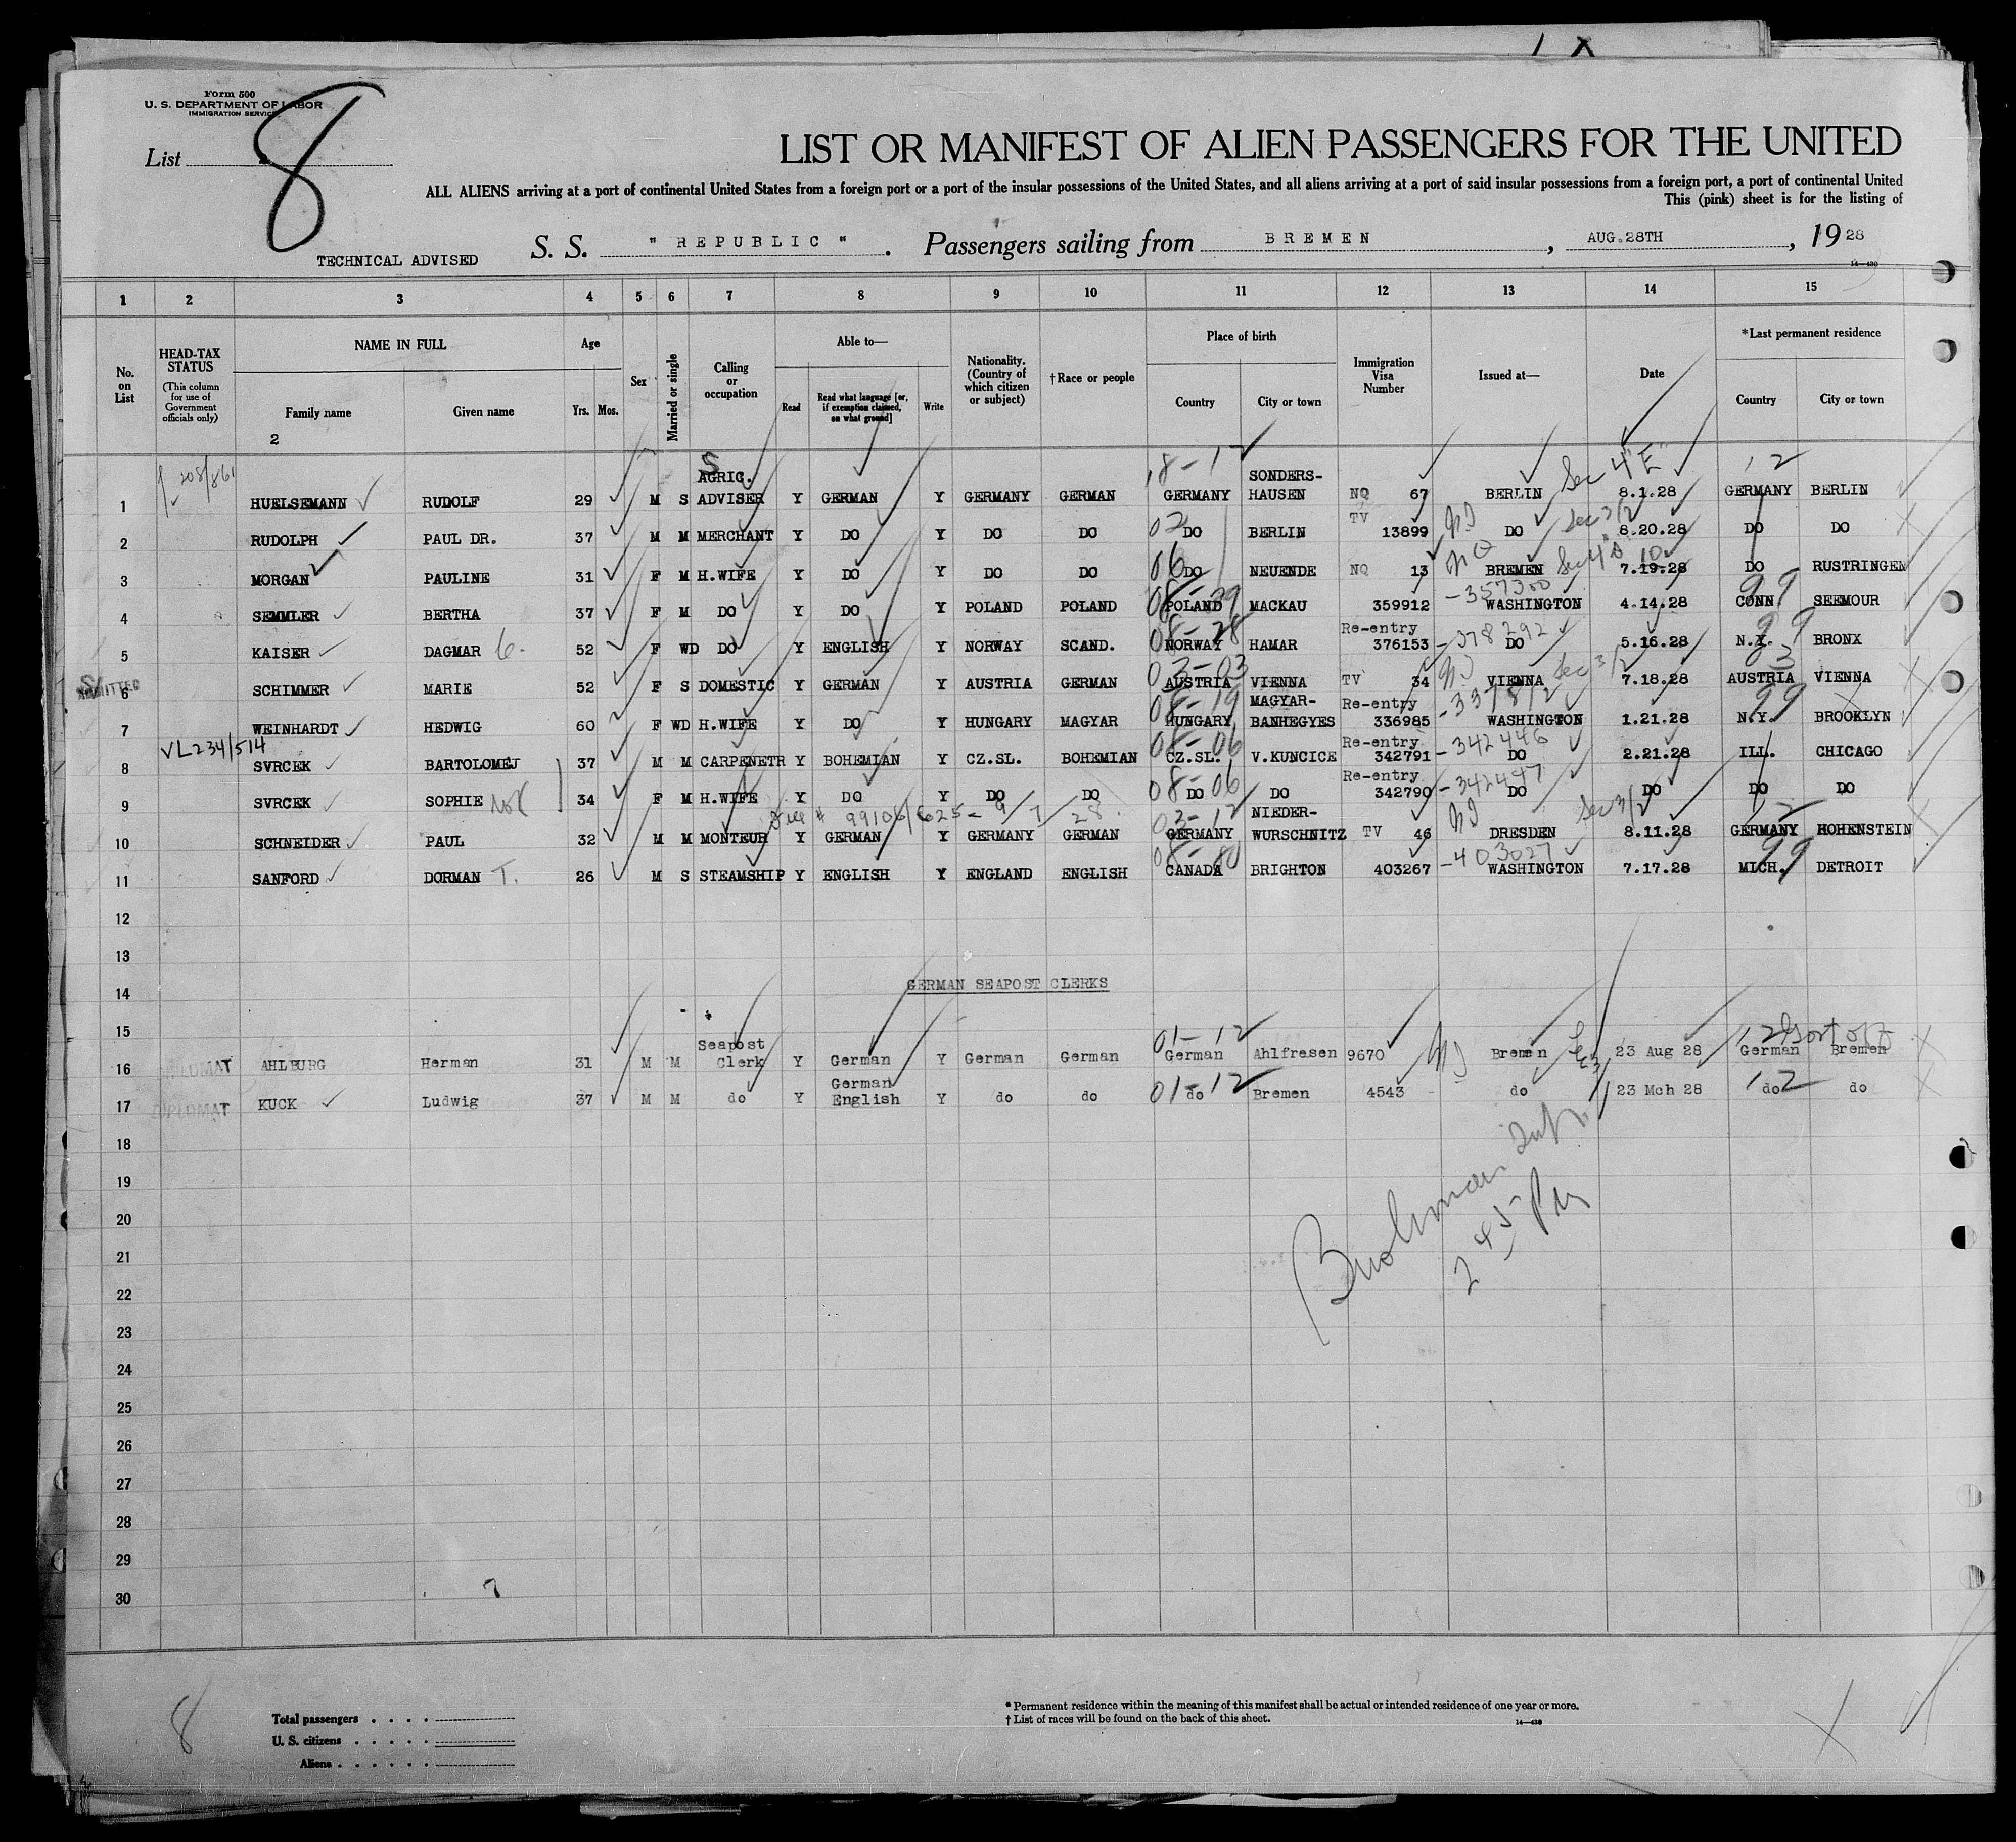 1 X
Form 500
U. S. DEPARTMENT OF LABOR
IMMIGRATION SERVICE
List
8
LIST OR MANIFEST OF ALIEN PASSENGERS FOR THE UNITED
ALL ALIENS arriving at a port of continental United States from a foreign port or a port of the insular possessions of the United States, and all aliens arriving at a port of said insular possessions from a foreign port, a port of continental United
This (pink) sheet is for the listing of
TECHNICAL ADVISED
S. S. " REPUBLIC ". Passengers sailing from BREMEN, AUG.28TH, 1928
14—430
1 2 3 4 5 6 7 8 9 10 11 12 13 14 15
No. on List
HEAD-TAX STATUS
(This column for use of Government officials only)
NAME IN FULL
Family name
Given name
2
Age
Yrs. Mos.
Sex
Married or single
Calling or occupation
Able to—
Read
Read what language [or, if exemption claimed, on what ground]
Write
Nationality. (Country of which citizen or subject)
†Race or people
Place of birth
Country
City or town
Immigration Visa Number
Issued at—
Date
*Last permanent residence
Country
City or town
208/861 S AGRIC. 18-12 SONDERS- Sec 4"E" 12
1 HUELSEMANN RUDOLF 29 M S ADVISER Y GERMAN Y GERMANY GERMAN GERMANY HAUSEN NQ 67 BERLIN 8.1.28 GERMANY BERLIN
02 TV Sec 3/2
2 RUDOLPH PAUL DR. 37 M M MERCHANT Y DO Y DO DO DO BERLIN 13899 DO 8.20.28 DO DO
06 NQ Sec 4" 10
3 MORGAN PAULINE 31 F M H.WIFE Y DO Y DO DO DO NEUENDE NQ 13 BREMEN 7.19.28 DO RUSTRINGEN
08-29 -357300 99
4 SEMMLER BERTHA 37 F M DO Y DO Y POLAND POLAND POLAND MACKAU 359912 WASHINGTON 4.14.28 CONN. SEEMOUR
08-28 Re-entry -378292 99
5 KAISER DAGMAR 52 F WD DO Y ENGLISH Y NORWAY SCAND. NORWAY HAMAR 376153 DO 5.16.28 N.Y. BRONX
ADMITTED 03-03 Sec 3/2 03
6 SCHIMMER MARIE 52 F S DOMESTIC Y GERMAN Y AUSTRIA GERMAN AUSTRIA VIENNA TV 34 VIENNA 7.18.28 AUSTRIA VIENNA
08-19 MAGYAR- Re-entry -337812 99
7 WEINHARDT HEDWIG 60 F WD H.WIFE Y DO Y HUNGARY MAGYAR HUNGARY BANHEGYES 336985 WASHINGTON 1.21.28 N.Y. BROOKLYN
VL234/514 08-06 Re-entry -342446
8 SVRCEK BARTOLOMEJ 37 M M CARPENETR Y BOHEMIAN Y CZ.SL. BOHEMIAN CZ.SL. V.KUNCICE 342791 DO 2.21.28 ILL. CHICAGO
08-06 Re-entry -342447
9 SVRCEK SOPHIE 34 F M H.WIFE Y DO Y DO DO DO DO 342790 DO DO DO DO
99106/625- 9/7/28. 03-12 NIEDER- Sec 3/2 12
10 SCHNEIDER PAUL 32 M M MONTEUR Y GERMAN Y GERMANY GERMAN GERMANY WURSCHNITZ TV 46 DRESDEN 8.11.28 GERMANY HOHENSTEIN
08-80 -403027 99
11 SANFORD DORMAN T. 26 M S STEAMSHIP Y ENGLISH Y ENGLAND ENGLISH CANADA BRIGHTON 403267 WASHINGTON 7.17.28 MICH. DETROIT
12
13
14 GERMAN SEAPOST CLERKS
15
Seapost 01-12 12
16 DIPLOMAT AHLBURG Herman 31 M M Clerk Y German Y German German German Ahlfresen 9670 Bremen 23 Aug 28 German Bremen
German
17 DIPLOMAT KUCK Ludwig 37 M M do Y English Y do do 01-12 do Bremen 4543 do 23 Mch 28 12 do do
18
19
20
21
22
23
24
25
26
27
28
29
30
2 45 PM
8
Total passengers . . . .
U. S. citizens . . . . .
Aliens . . . . . .
* Permanent residence within the meaning of this manifest shall be actual or intended residence of one year or more.
† List of races will be found on the back of this sheet.
14—430